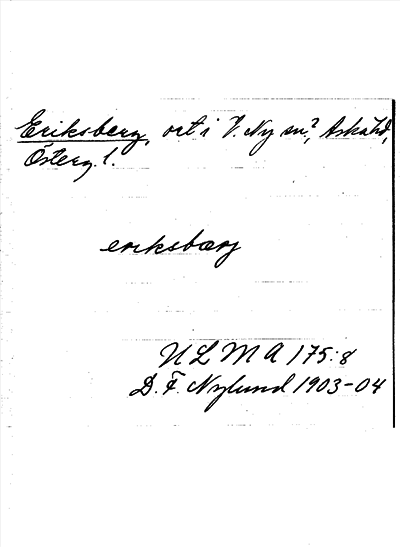 Eriksberg, ort i V. Ny sn?, Aska hd,
Österg. l.
eriksbærj
ULMA 175:8
D. F. Nylund 1903-04